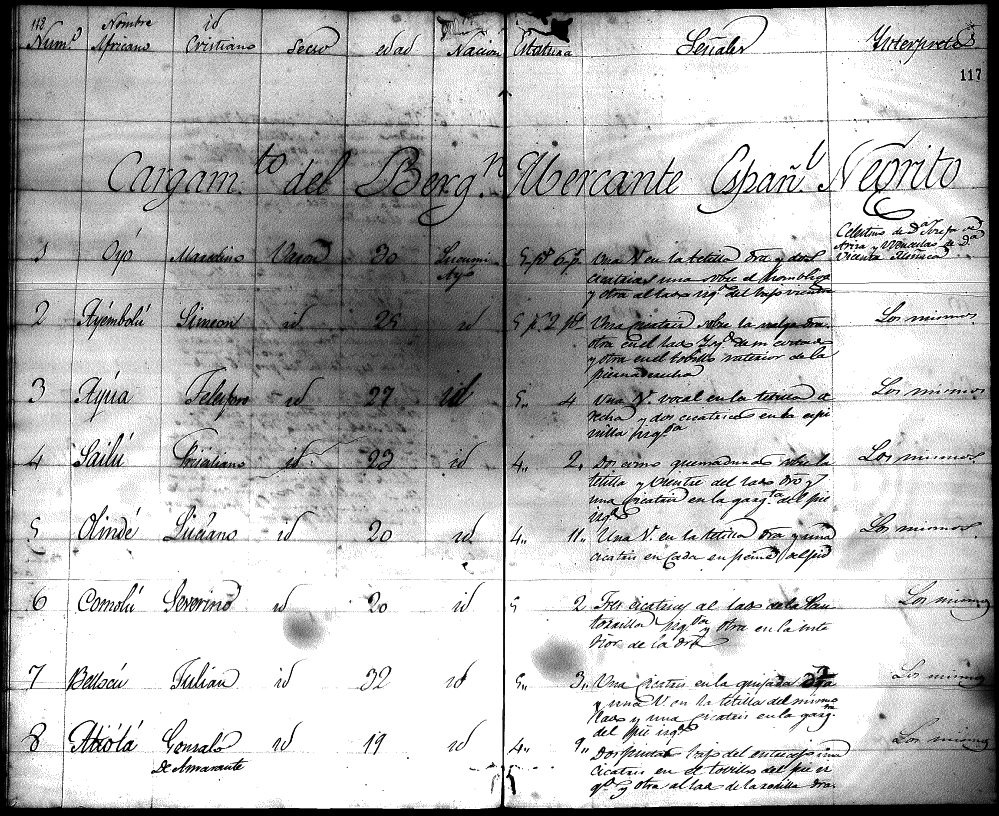 118 Nombre id
Num.º Africano Cristiano Secso edad Nacion Estatura Señales Ynterpretes
117
Cargam.to del Berg.n Mercante Españ.l Negrito
1 Oyó Marcelino Varon 30 Lucumi 5 p.s 6 p. Una V. en la tetilla dra y dos
Ayó cicatrices una sobre el hombligo
y otra al lado izq.º del bajo vientre
Celestino de D.ª Josefa de
y Wenceslao de D.ª
Vicenta
2 Ayembolú Simeon id 25 id 5 p.s 2 p.s Una cicatriz sobre la nalga dra.
otra en el lado Izq.º
y otra en el tobillo interior de la
pierna derecha
Los mismos
3 Ayúa Telesforo id 27 id 5,, 4 Una V. en la tetilla de
recha y dos cicatrices en la espi
nilla izq.da
Los mismos
4 Sailú Prisciliano id 23 id 4,, 2,, Dos como quemaduras sobre la
tetilla y vientre del lado dro y
una cicatriz en la garg.ta del pie
izq.º
Los mismos
5 Olindé Luciano id 20 id 4,, 11,, Una V. en la tetilla dra y una
cicatriz en cada
Los mismos
6 Comolú Severino id 20 id 5 2 Tres cicatrices al lado de la Pan
torrilla izq.da y otra en la inte
rior de la dra
Los mismos
7 Bellocú Julian id 32 id 5,, 3,, Una cicatriz en la quijada dra
y una V. en la tetilla del mismo
lado y una cicatriz en la garg.ta
del pie izq.º
Los mismos
8 Atiólá Gonzalo id 19 id 4,, 9,, Dos bajo del una
De Amarante cicatriz en el tovillo del pie iz
q.º y otra al lado de la rodilla dra.
Los mismos